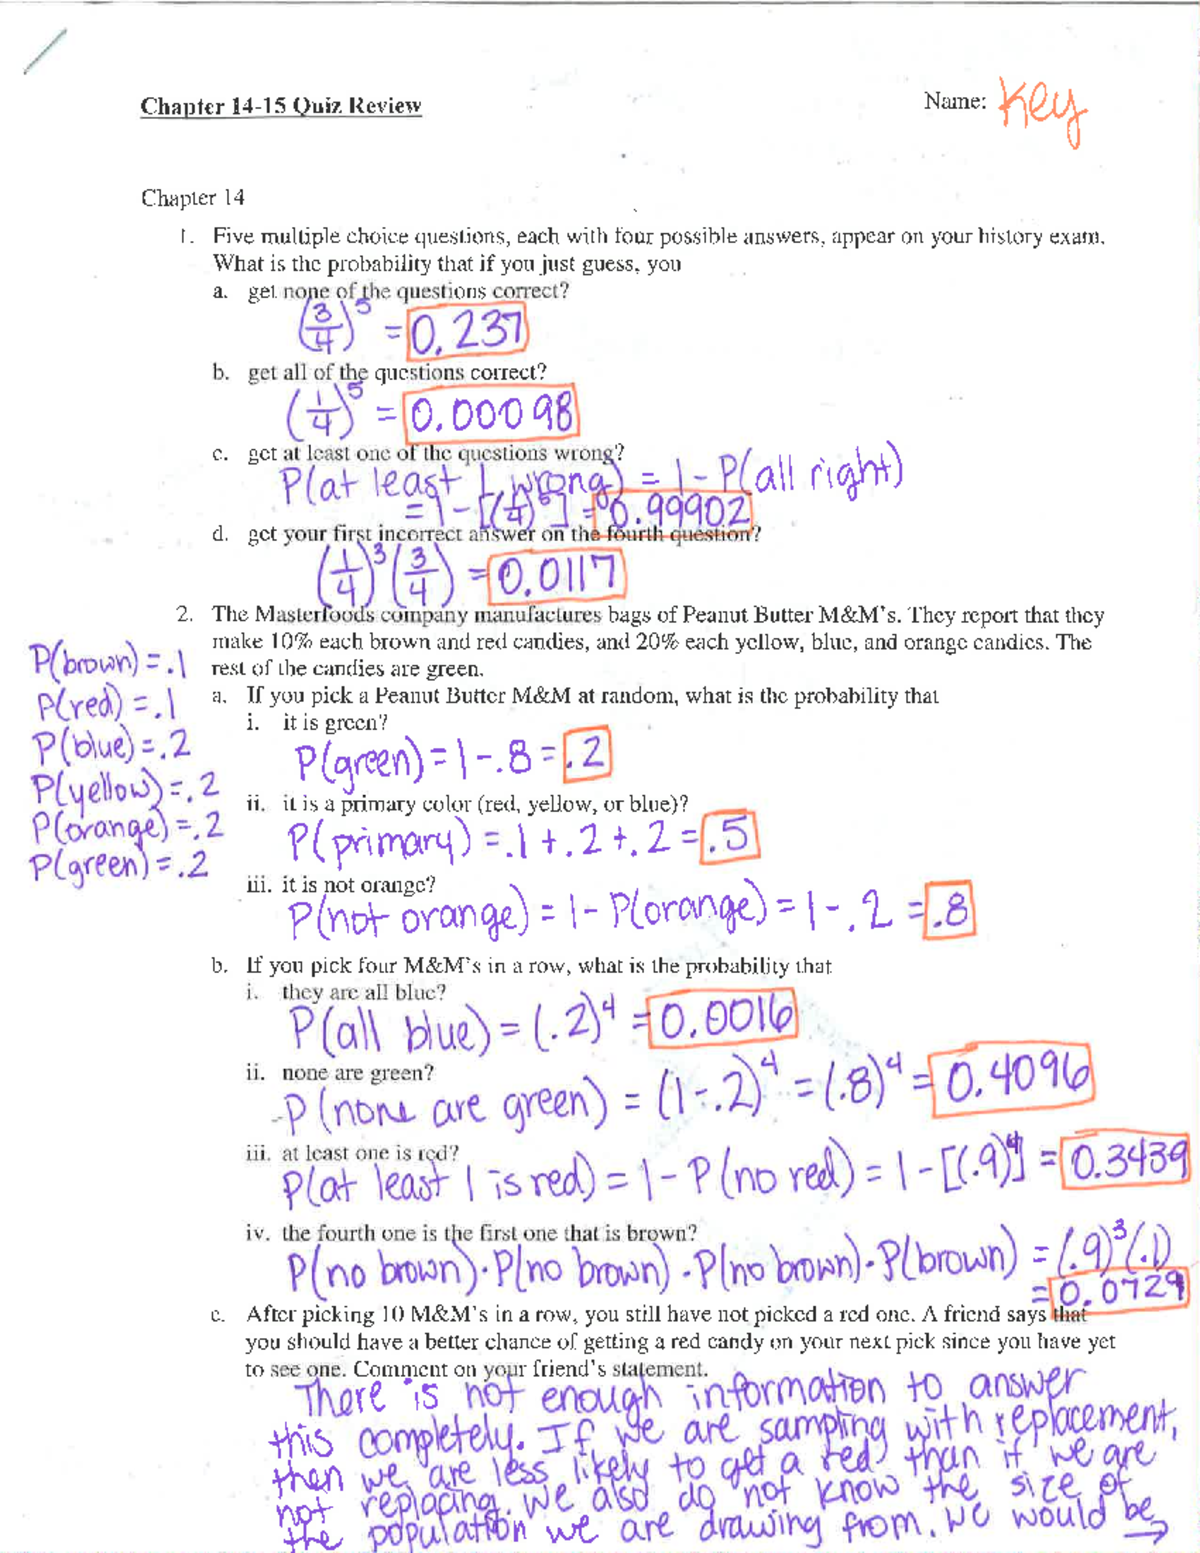 Chapter 14-15 Quiz Review
Name: Key
Chapter 14
1. Five multiple choice questions, each with four possible answers, appear on your history exam.
What is the probability that if you just guess, you
a. get none of the questions correct?
(3/4)^5 = 0.237
b. get all of the questions correct?
(1/4)^5 = 0.00098
c. get at least one of the questions wrong?
P(at least 1 wrong) = 1 - P(all right)
= 1 - [(1/4)^5] = 0.99902
d. get your first incorrect answer on the fourth question?
(1/4)^3 (3/4) = 0.0117
2. The Masterfoods company manufactures bags of Peanut Butter M&M's. They report that they
make 10% each brown and red candies, and 20% each yellow, blue, and orange candies. The
rest of the candies are green.
P(brown) = .1
P(red) = .1
P(blue) = .2
P(yellow) = .2
P(orange) = .2
P(green) = .2
a. If you pick a Peanut Butter M&M at random, what is the probability that
i. it is green?
P(green) = 1 - .8 = .2
ii. it is a primary color (red, yellow, or blue)?
P(primary) = .1 + .2 + .2 = .5
iii. it is not orange?
P(not orange) = 1 - P(orange) = 1 - .2 = .8
b. If you pick four M&M's in a row, what is the probability that
i. they are all blue?
P(all blue) = (.2)^4 = 0.0016
ii. none are green?
P(none are green) = (1-.2)^4 = (.8)^4 = 0.4096
iii. at least one is red?
P(at least 1 is red) = 1 - P(no red) = 1 - [(.9)^4] = 0.3439
iv. the fourth one is the first one that is brown?
P(no brown)·P(no brown)·P(no brown)·P(brown) = (.9)^3(.1)
= 0.0729
c. After picking 10 M&M's in a row, you still have not picked a red one. A friend says that
you should have a better chance of getting a red candy on your next pick since you have yet
to see one. Comment on your friend's statement.
There is not enough information to answer
this completely. If we are sampling with replacement,
then we are less likely to get a red than if we are
not replacing. We also do not know the size of
the population we are drawing from. We would be →